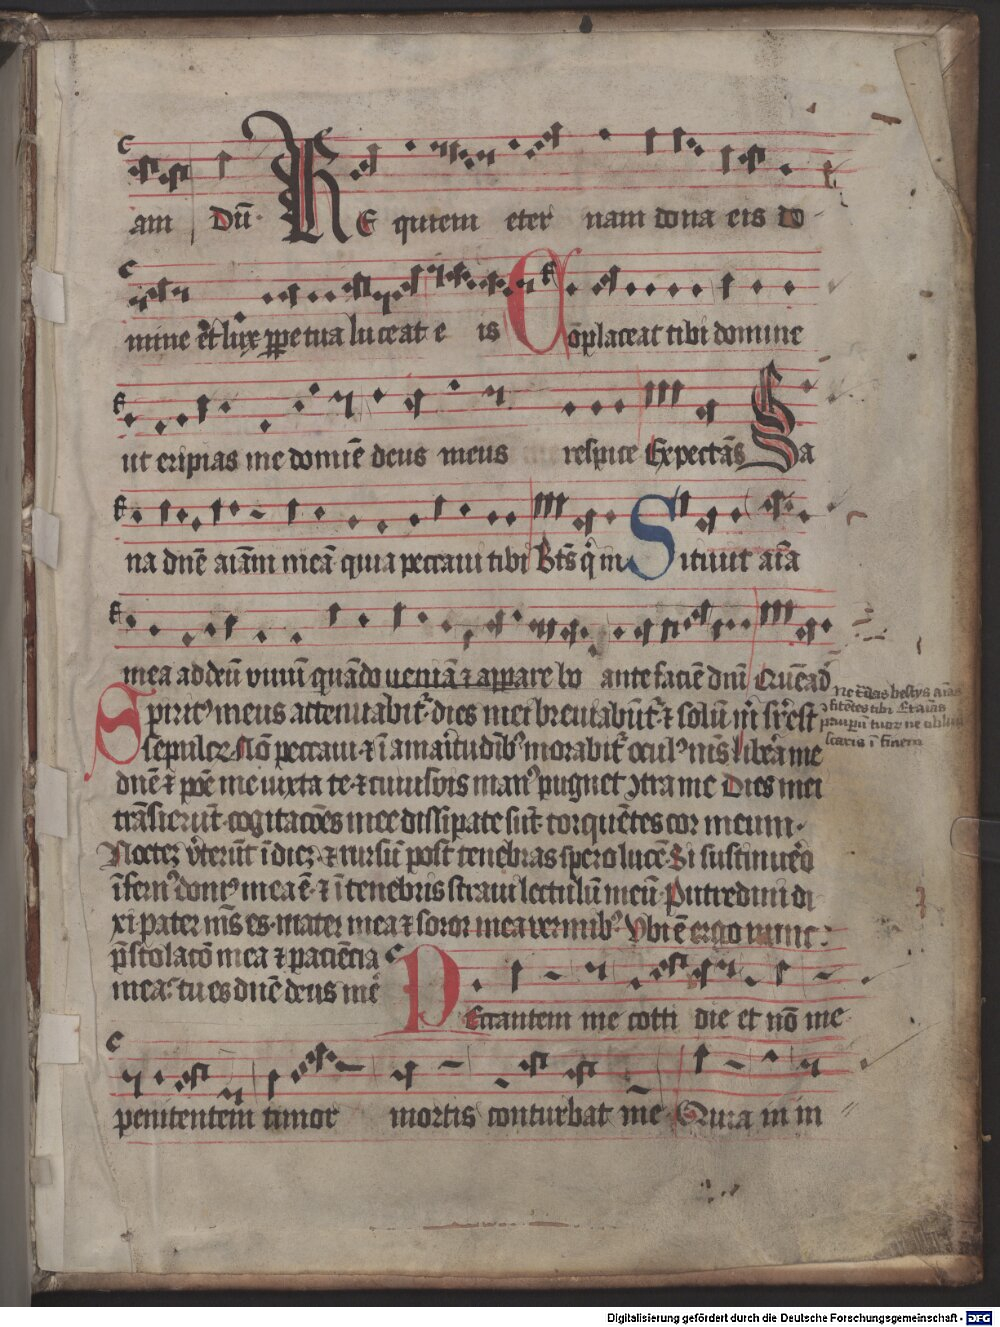 am Dū REquiem eter nam dona eis do
mine et lux ꝑpetua luceat e is Cōplaceat tibi domine
ut eripias me domīe deus meus respice Expectās Sa
na dn̄e aīam meā quia peccaui tibi Bt̄s q̄ in Sitiuit aīa
mea ad deū viuū quādo ueniā ⁊ appare bo ante faciē dn̄i Qruēad
Ne t̄das bestijs aīas
ꝯfitētes tibi Et aīas
pauperū tuoꝝ ne obliui
scaris ī finem
Spiritꝰ meus attenuabit̄ dies mei breuiabūt̄ ⁊ solū m̄ sr̄est
sepulcꝝ Nō peccaui ⁊ ī amaritudībꝫ morabit̄ oculꝰ me̅s libera me
dn̄e ⁊ pōe me iuxta te ⁊ cuiusvis manꝰ pugnet ꝯtra me Dies mei
trāsierūt cogitacōes mee dissipate sūt torquētes cor meum
Noctē v̄terūt ī diē ⁊ rursū post tenebras spero lucē Si sustinuero
īfernꝰ domꝰ mea ē ⁊ ī tenebris straui lectulū meū Putredini di
xi pater me̅s es mater mea ⁊ soror mea vermibꝫ Vbi ē ergo nunc
p̄stolacō mea ⁊ paciēcia
mea tu es dn̄e deus me̅
PEccantem me cotti die et nō me
penitentem timor mortis conturbat me Quia in in
Digitalisierung gefördert durch die Deutsche Forschungsgemeinschaft - DFG